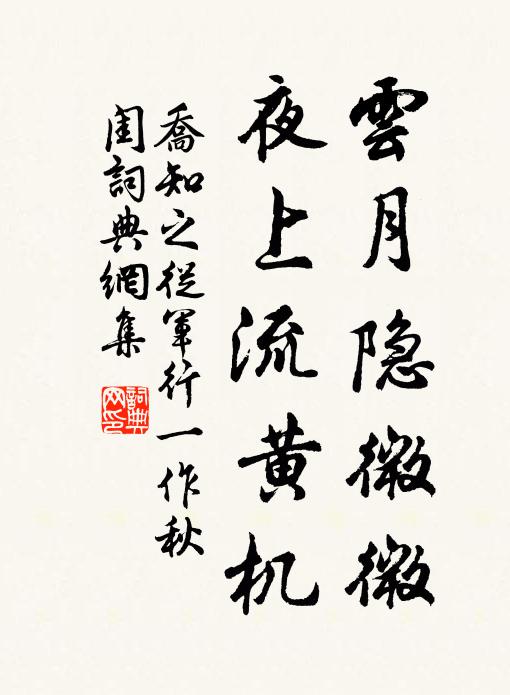 雲月隐微微
夜上流黄机
喬知之從軍行一作秋
閨詞典網集
詞典
网印